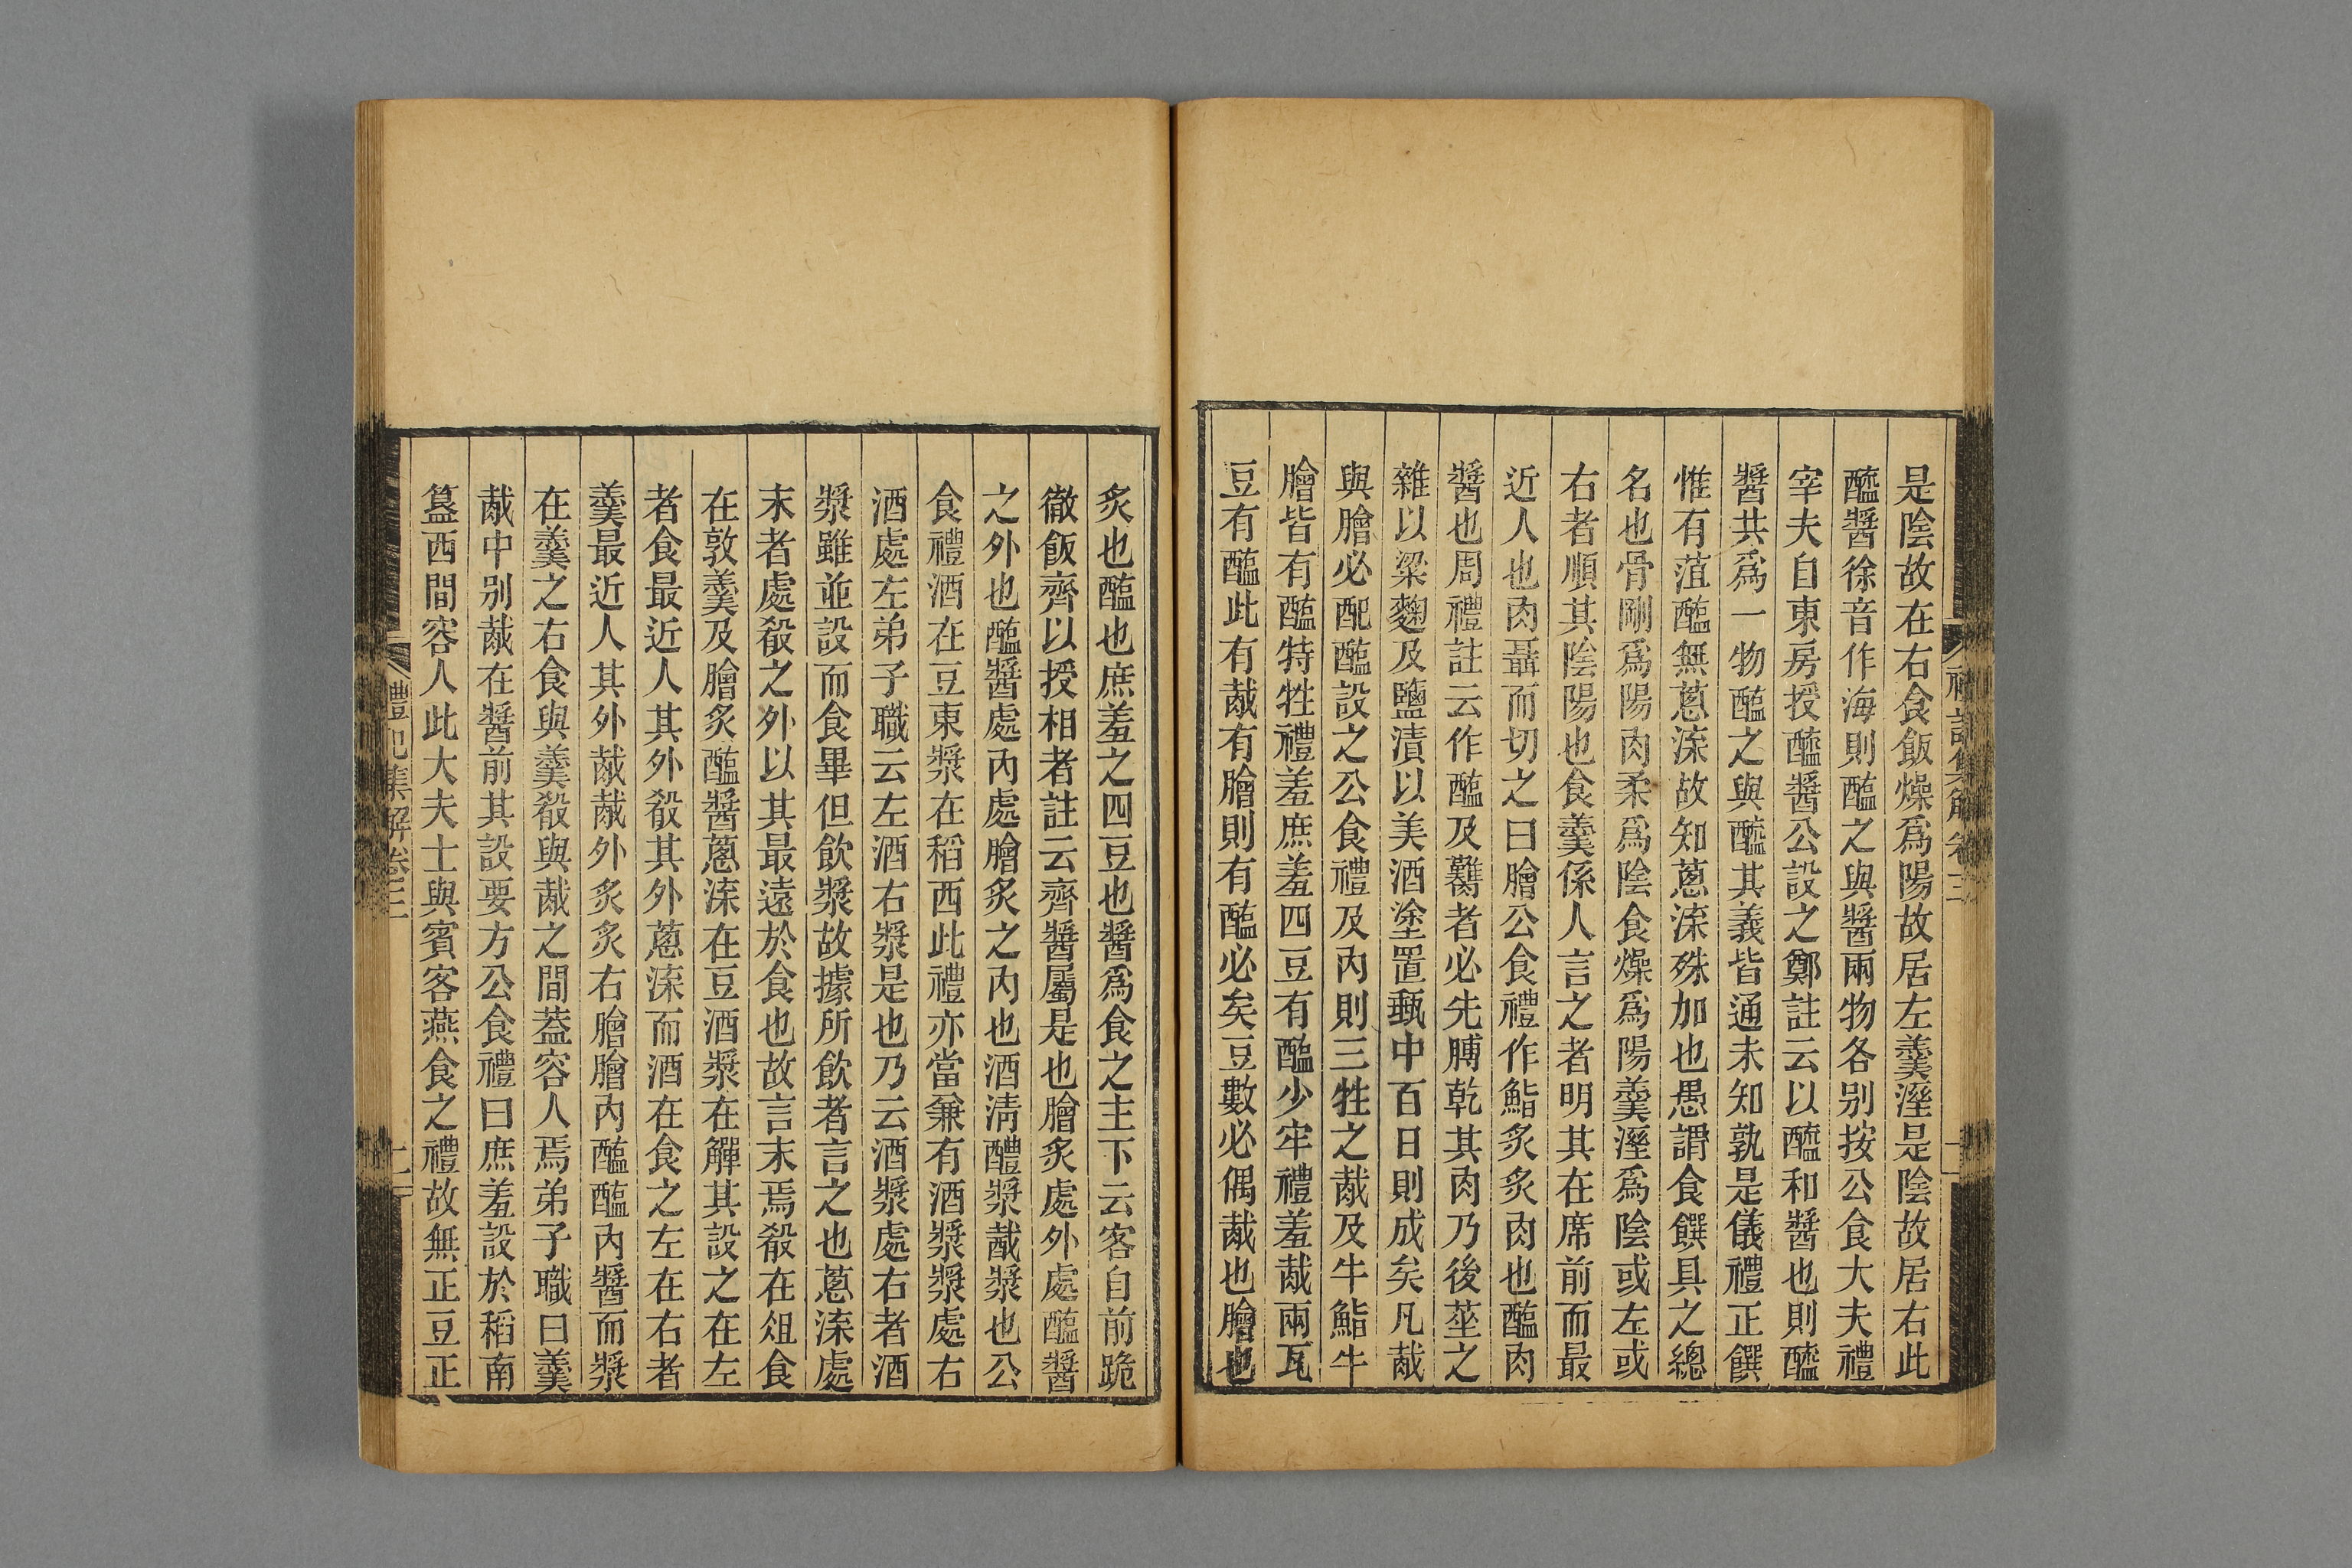 是陰故在右食飯燥爲陽故居左羹溼是陰故居右此
醯醬徐音作海則醢之與醬兩物各别按公食大夫禮
宰夫自東房授醯醬公設之鄭註云以醯和醬也則醯
醬共爲一物醢之與醯其義皆通未知孰是儀禮正饌
惟有菹醢無蔥㳿故知蔥㳿殊加也愚謂食饌具之總
名也骨剛爲陽肉柔爲陰食燥爲陽羹溼爲陰或左或
右者順其陰陽也食羹係人言之者明其在席前而最
近人也肉聶而切之曰膾公食禮作鮨炙炙肉也醢肉
醬也周禮註云作醢及臡者必先膊乾其肉乃後莝之
雜以粱麴及鹽漬以美酒塗置甀中百日則成矣凡胾
與膾必配醢設之公食禮及內則三牲之胾及牛鮨牛
膾皆有醢特牲禮羞庶羞四豆有醢少牢禮羞胾兩瓦
豆有醢此有胾有膾則有醢必矣豆數必偶胾也膾也
炙也醢也庶羞之四豆也醬爲食之主下云客自前跪
徹飯齊以授相者註云齊醬屬是也膾炙處外處醯醬
之外也醯醬處內處膾炙之內也酒淸醴漿胾漿也公
食禮酒在豆東漿在稻西此禮亦當兼有酒漿漿處右
酒處左弟子職云左酒右漿是也乃云酒漿處右者酒
漿雖並設而食畢但飲漿故據所飲者言之也蔥㳿處
末者處殽之外以其最遠於食也故言末焉殽在俎食
在敦羹及膾炙醯醬蔥㳿在豆酒漿在觶其設之在左
者食最近人其外殽其外蔥㳿而酒在食之左在右者
羹最近人其外胾胾外炙炙右膾膾內醢醢內醬而漿
在羹之右食與羹殽與胾之間蓋容人焉弟子職曰羹
胾中别胾在醬前其設要方公食禮曰庶羞設於稻南
簋西間容人此大夫士與賓客燕食之禮故無正豆正
禮記集解卷三